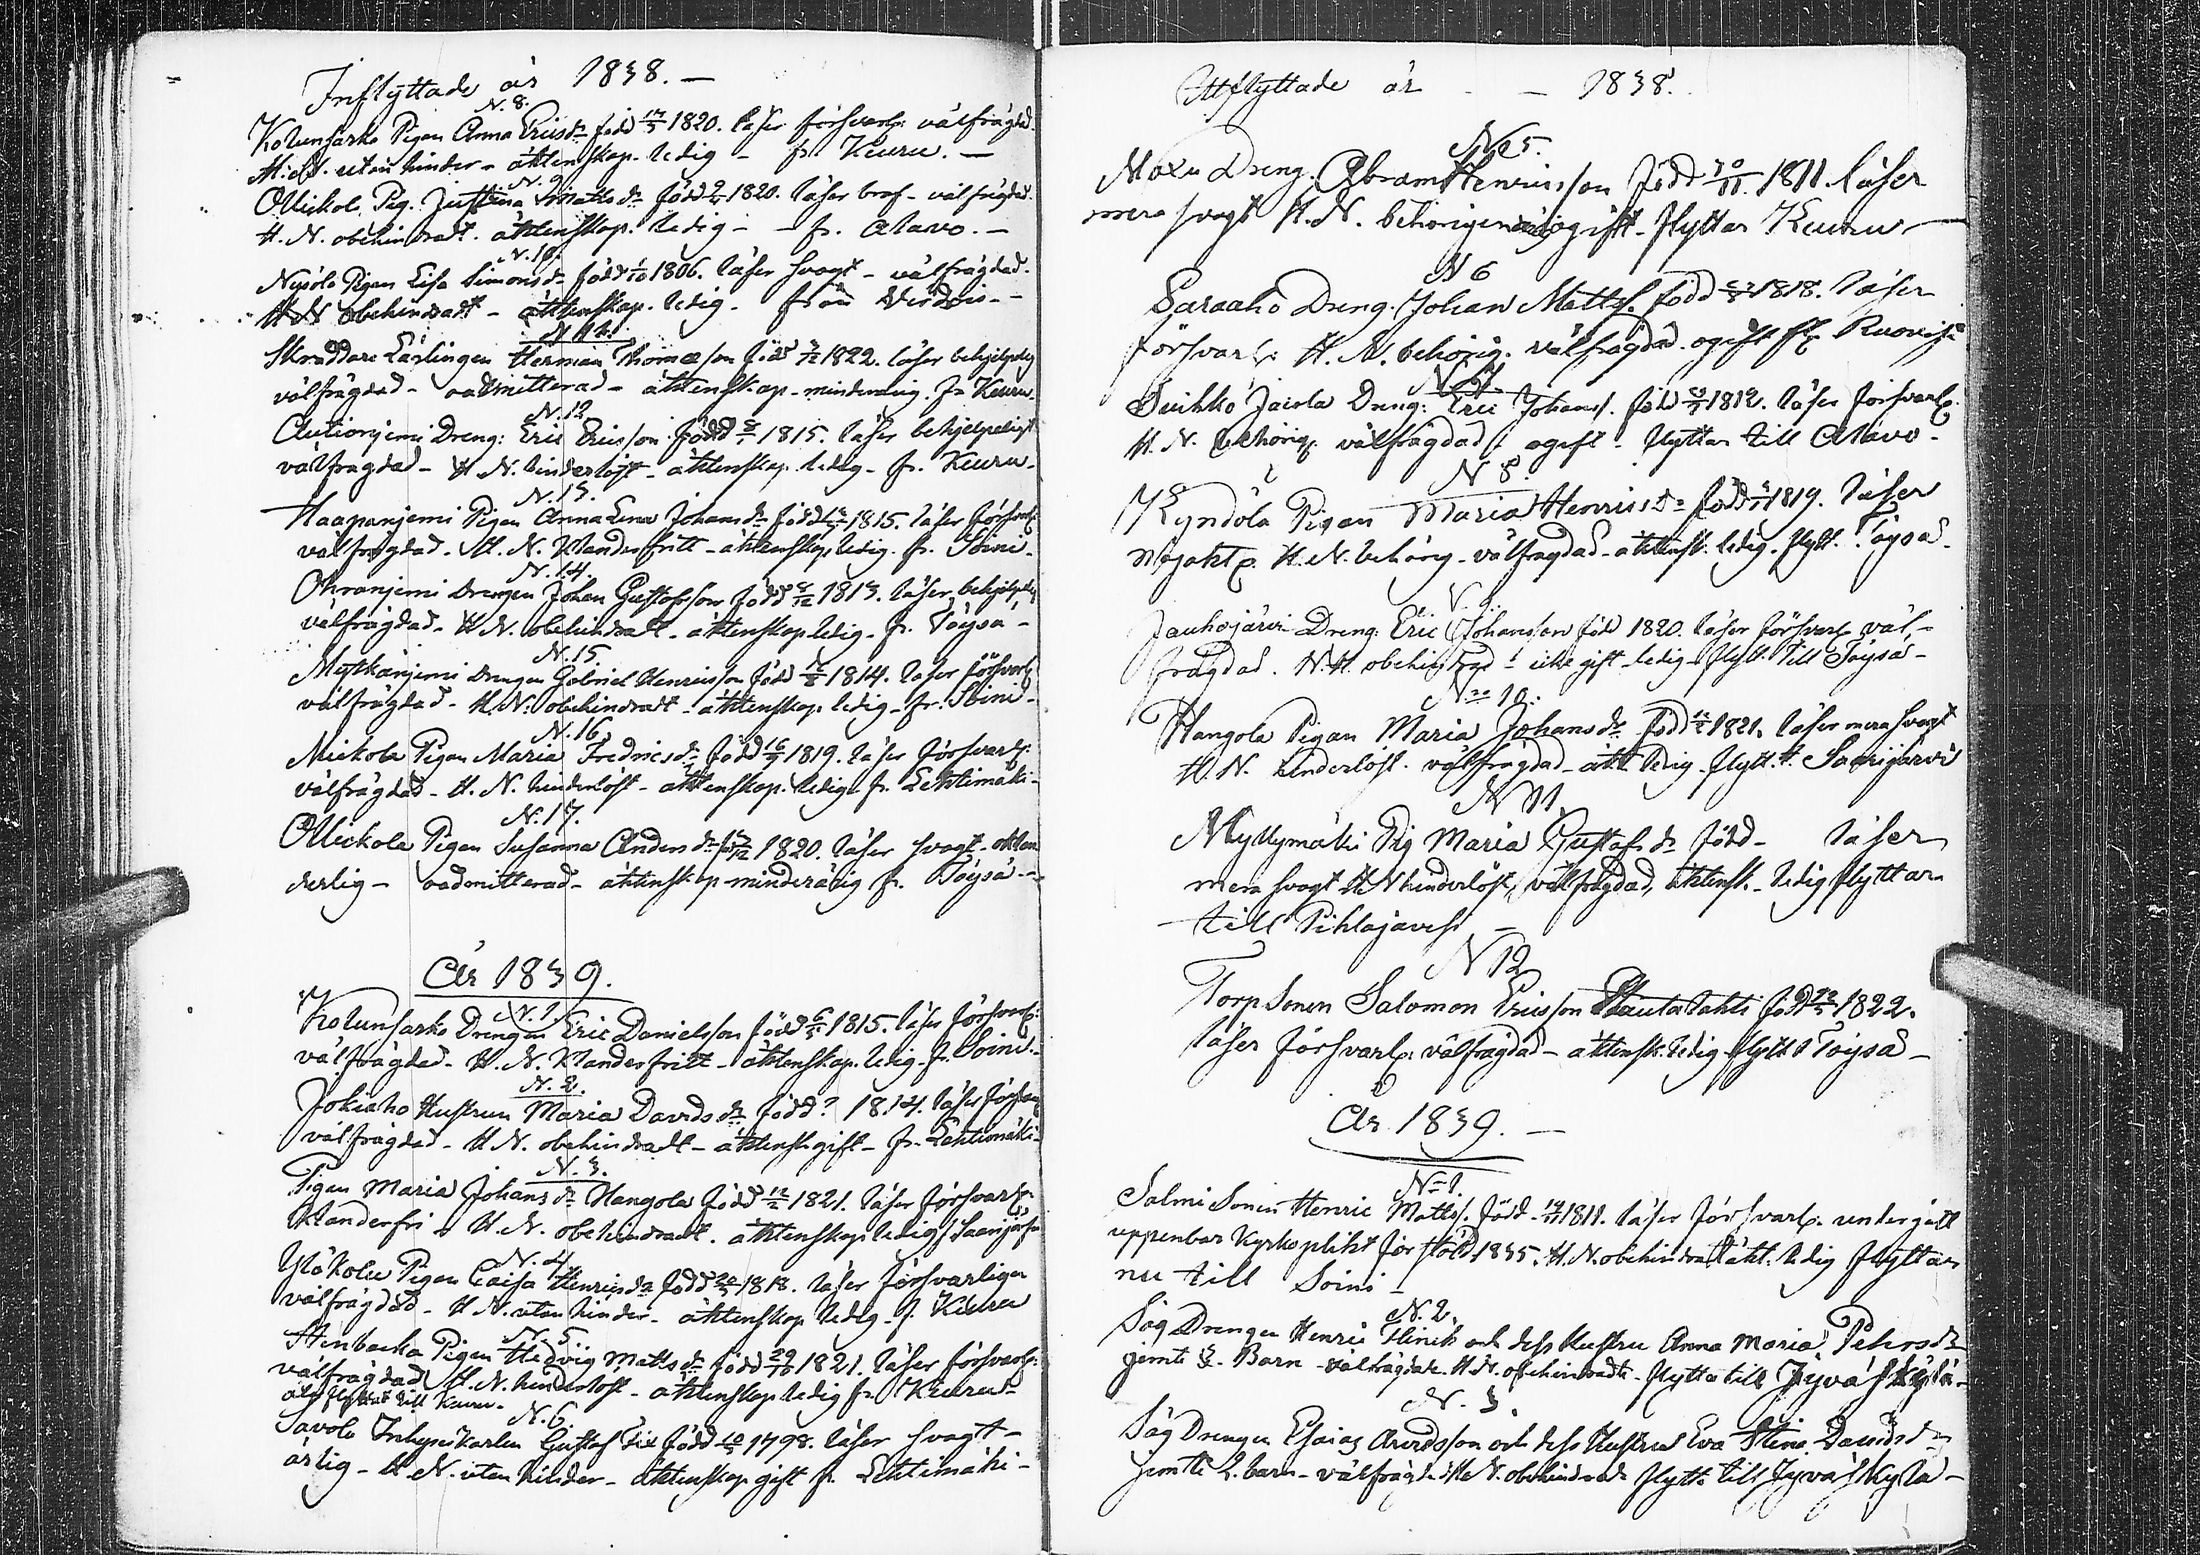 Inflyttade år 1838. —
N. 8.
Kolunsarko Pigan Anna Ericsdr född 1820. läser försvarl: välfrägdad
utan hinder - äktenskap. ledig - fr. Keuru. —
N. 9
Mickol. Pig. Justina Matts dr född 1820. läser braf - välfrägdad
H. N. obehindradt. äktenskap. ledig - - fr. Alavo. —
N. 10.
Nysölä Pigan Lisa Simons dr född 1806. läser svagt - välfrägdad.
H N obehindradt - äktenskap. ledig - från Virdois -
N 11.
Skräddare Lärlingen Herman Thomasson född 1822. läser behjelpelig
välfrägdad - oadmitterad - äktenskap - minderårig. fr Keuru.
N. 12
Autionjemi Dreng: Eric Ericsson född 1815. läser behjelpeligt
välfrägdad - H N. hinderlöst - äktenskap ledig - fr. Keuru -
N. 13.
Haapanjemi Pigan Anna Lena Johans dr född 1815. läser försvarl:
välfrägdad. H. N. klanderfritt - äktenskap ledig. fr. Soini -
N. 14.
Ohranjemi Drengen Johan Gustafsson född 1813. läser behjelpelig
välfrägdad - H N. obehindradt - äktenskap ledig - fr. Töysä -
N. 15
Matkanjemi Drengen Gabriel Henricsson född 1814. läser försvarl
välfrägdad - H. N. obehindradt - äktenskap ledig - fr. Soini -
N. 16.
Mickola Pigan Maria Fredrics dr född 1819. läser försvarl:
välfrägdad - H. N. hinderlöst - äktenskap. ledig fr. Lehtimäki -
N. 17.
Mickola Pigan Susanna Anders dr född 1820. läser svagt -
derlig - oadmitterad - äktenskap minderårig fr. Töysä -
År 1839.
N. 1
Kolunsarko Drengen Eric Danielsson född 1815. läser försvarl:
välfrägdad - H. N. klanderfritt - äktenskap. ledig fr. Soini -
N. 2.
Jokiaho Hustrun Maria Davids dr född? 1814. läser försvarl
välfrägdad - H N. obehindradt - äktensk gift - fr. Lehtimäki -
N. 3.
Pigan Maria Johans dr Hangola född 1821. läser försvarl:
klanderfri - H. N. obehindradt. äktenskap ledig f Saarijärfvi
N. 4
Yläkolu Pigan Caisa Henrics dr född 1818. läser försvarligen
välfrägdad - H N. utan hinder - äktenskap ledig - f. Keuru
N. 5.
Stenbacka Pigan Hedvig Matts dr född 1821. läser försvarl:
välfrägdad H. N. hinderlöst - äktenskap ledig fr. Keuru -
flyttat till Keuru -
N. 6.
Savola Inhyseskarlen Gustaf Fix född 1798. läser svagt -
ärlig - H. N. utan hinder - äktenskap gift fr. Lehtimäki -
Utflyttade år - - 1838.
N 5.
Maxu Dreng. Abram Henricsson född 1811 läser
mera svagt H. N. behörigen ogift - flyttar Keuru -
N 6
Saraaho Dreng. Johan Matts. född 1818. läser
försvarl: H. N. behörig. välfrägdad ogift fl. Ruovesi
N 7
Suihko Jaiola Dreng: Eric Johans. född 1812. läser försvarl.
H. N. behörig. välfrägdad, ogift - flyttar till Alavo -
N 8.
Kyndölä Pigan Maria Henrics dr född 1819. läser
H. N. behörig - välfrägdad - äktensk. ledig. flytt. Töysä.
N. 9
Jauhojärvi Dreng. Eric Johansson född 1820. läser försvarl väl-
frägdad. N. H. obehindrad - icke gift - ledig - flytt. till Töysä -
No 10.
Hangola Pigan Maria Johans dr född 1821. läser mera svagt
H. N. hinderlöst. välfrägdad - äkt ledig. flytt. t. Saarijärvi
N 11
Myllymäki Pig Maria Gustafs dr född - läser
mera svagt H N hinderlöst, välfrägdad, äktensk. - ledig flyttar
till Pihlajavesi -
N 12
Torp Sonen Salomon Ericsson Hautalahti född 1822.
läser försvarl. välfrägdad - äktensk. ledig flytt t Töysä -
År 1839. —
N 1.
Salmi Sonen Henric Matts. född 1811. läser försvarl. undergått
uppenbar kyrkoplikt för stöld 1835. H. N. obehindradt äkt. ledig flyttar
nu till Soini -
N. 2.
Såg Drengen Henric Flinck och dess Hustru Anna Maria Pehrs dr
jemte 3 Barn - välfrägdade H N. obehindradt - flytta till Jyväskylä -
N. 3.
Såg Drengen Esaias Arvedsson och dess Hustru Eva Stina Davids dr
jemte 2. barn - välfrägdade H N. obehindradt flytt till Jyväskylä -